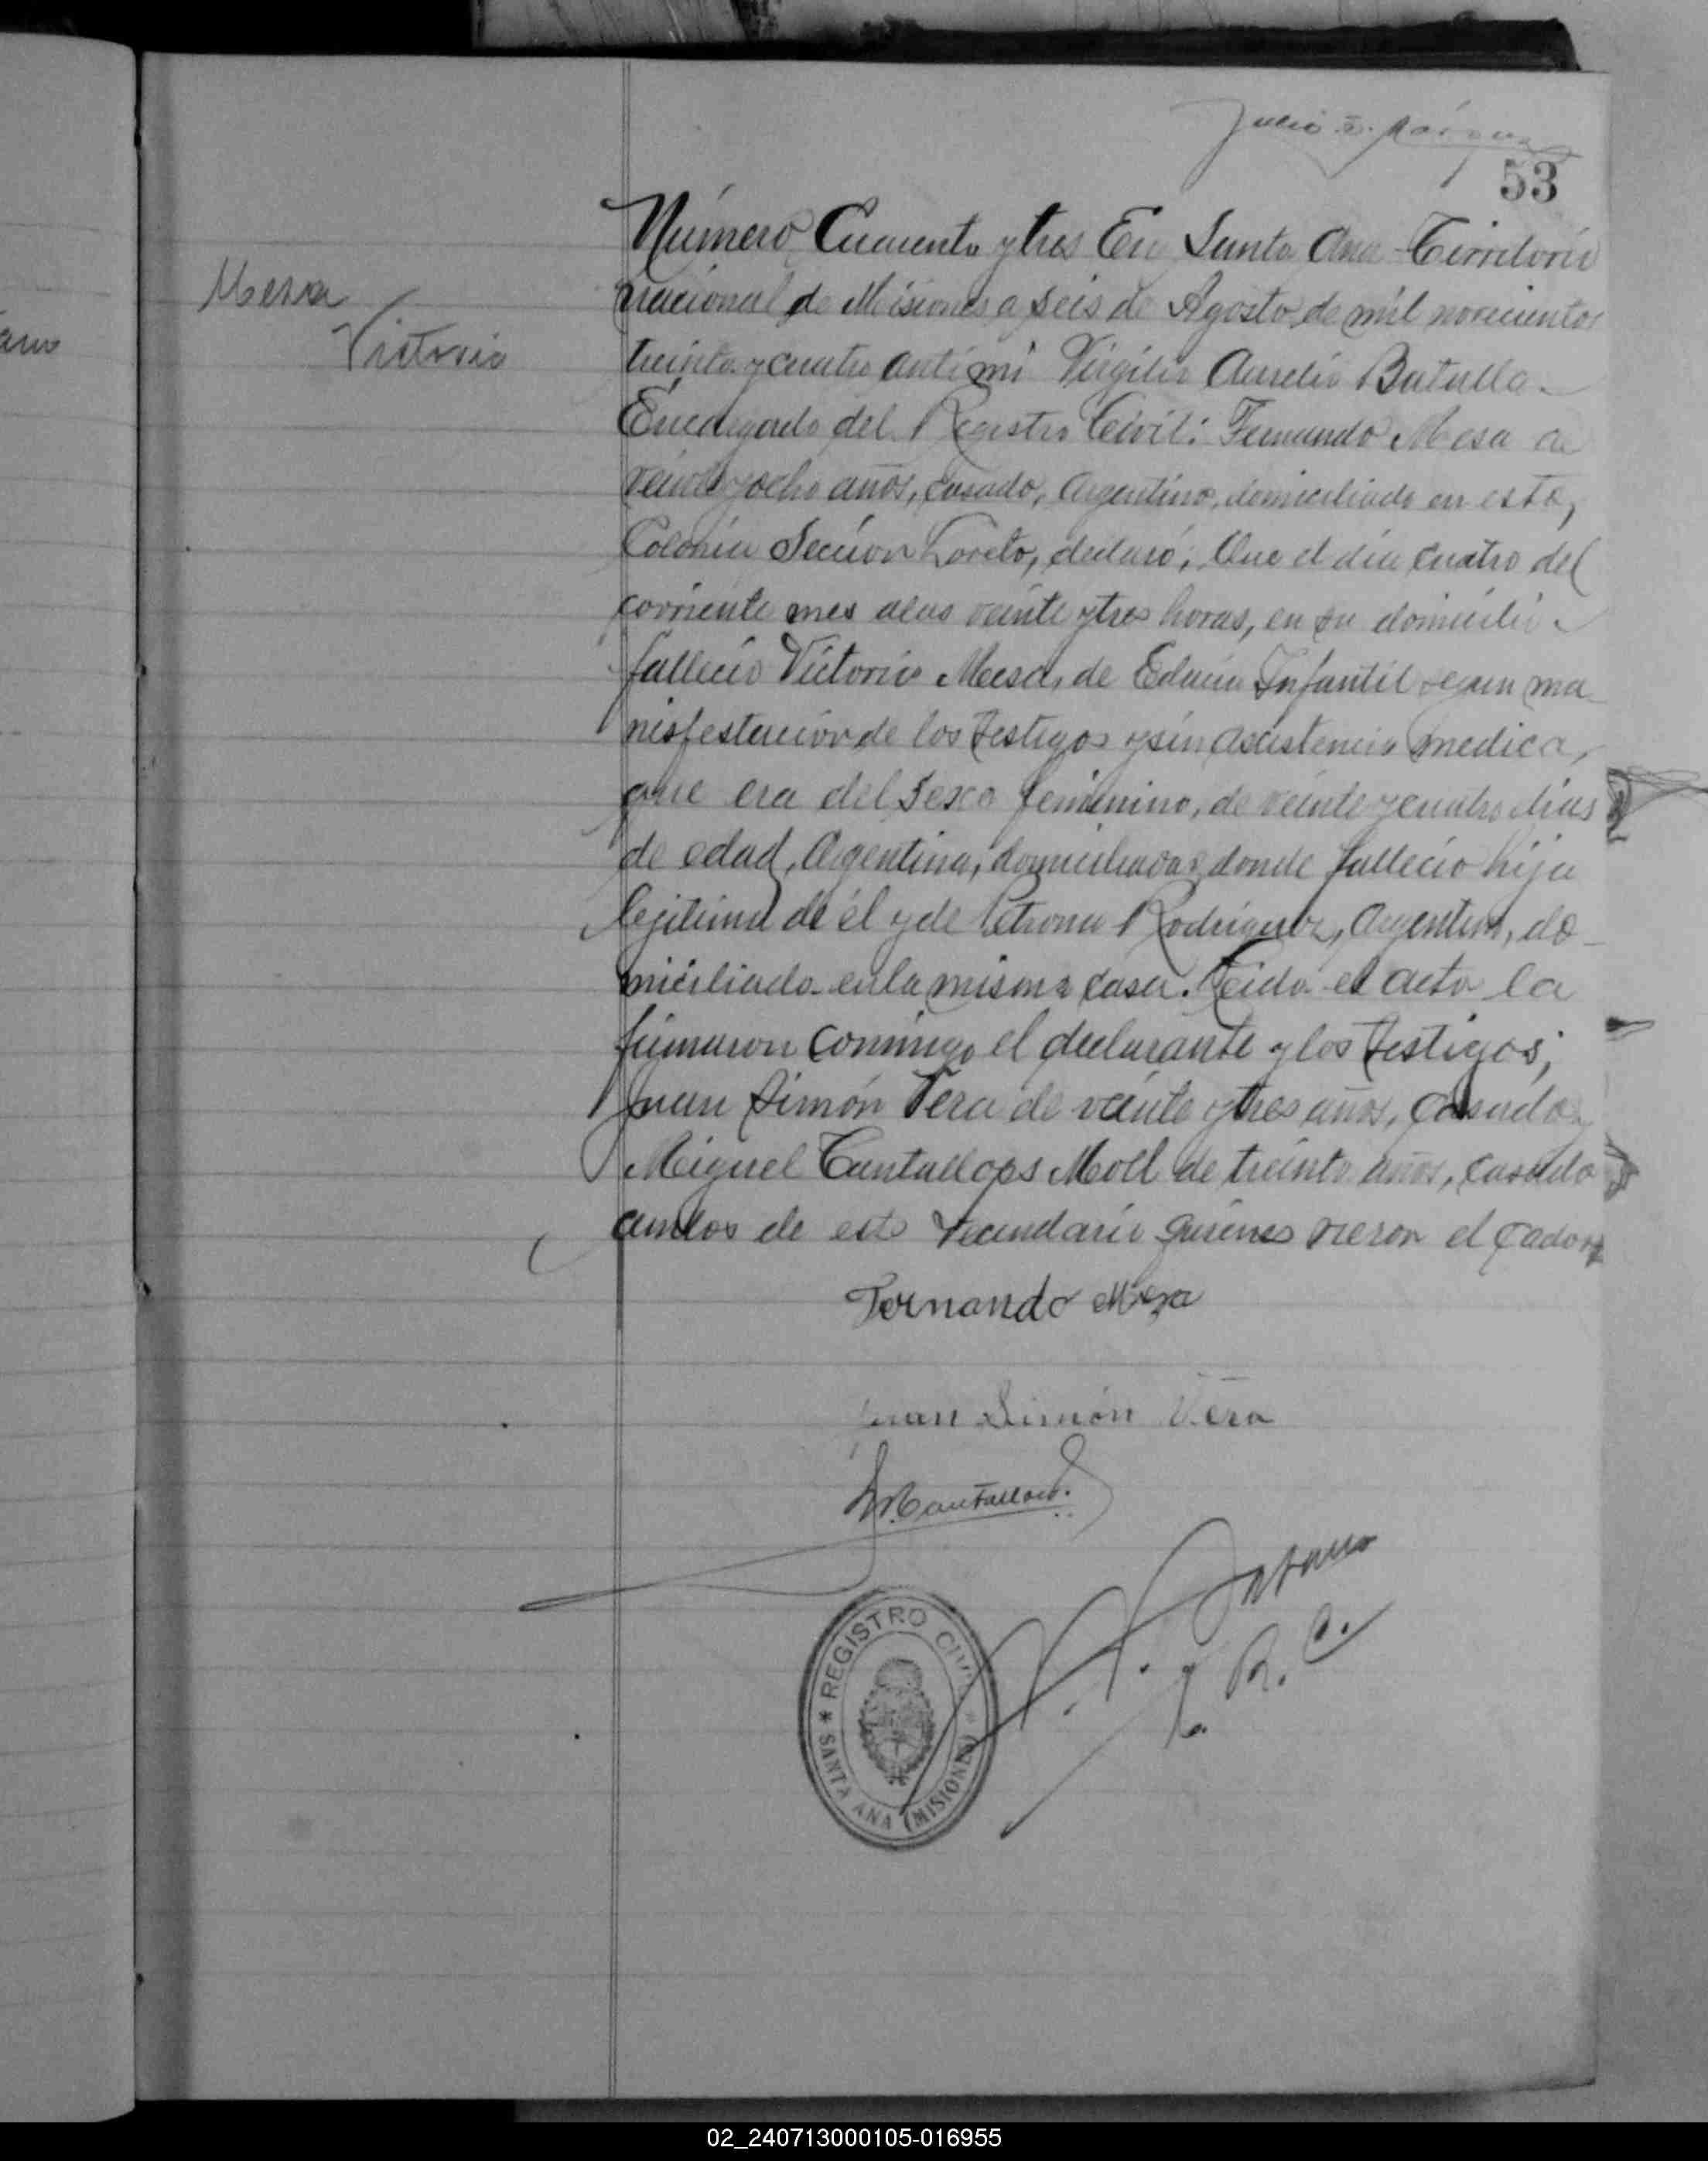 Julio
53
Mesa
Victorio
Número Cuarenta y tres En Santa Ana Territorio
nacional de Misiones a seis de Agosto de mil novecientos
treinta y cuatro ante mi Virgilio Aurelio Batalla
Encargado del Registro Civil: Fernando Mesa de
veinte y ocho años, casado, Argentino, domiciliado en esta,
Colonia Sección Loreto, declaró; Que el día cuatro del
corriente mes a las veinte y tres horas, en su domicilio
fallecio Victorio Mesa, de Infantil segun ma
nisfestacion de los testigos y sin asistencia medica,
que era del sexo femenino, de veinte y cuatro dias
de edad, Argentina, domiciliada donde fallecio hija
lejitima de él y de Petrona Rodriguez, Argentina, do
miciliado en la misma casa. Leida el acta la
firmaron conmigo el declarante y los testigos;
Juan Simón Vera de veinte y tres años, casado y
Miguel Cantallops Moll de treinta años, casado
ambos de este vecindario quienes vieron el cadaver
Fernando Mesa
Juan Simón Vera
M Cantallops.
E. R. C.
REGISTRO CIVIL
SANTA ANA (MISIONES)
02_240713000105-016955